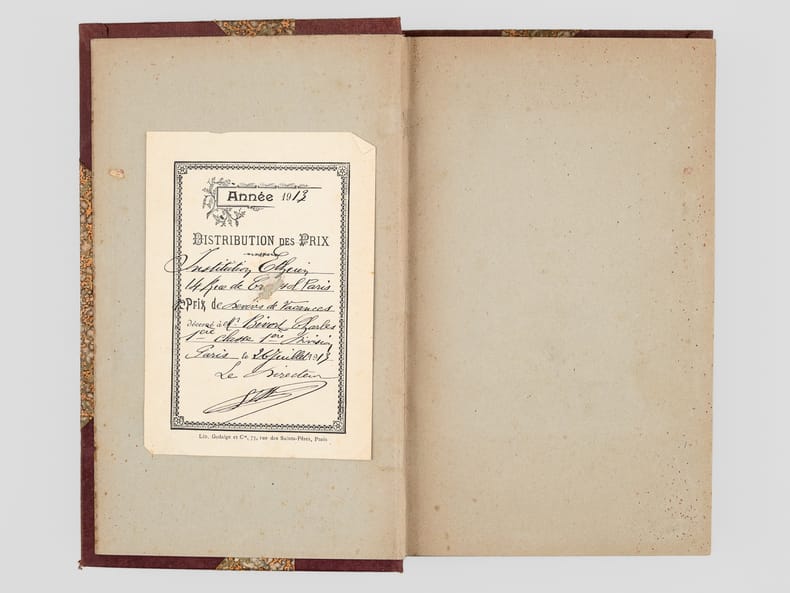 Année 1913
DISTRIBUTION DES PRIX
Institution
14 Rue de Paris
Prix de Devoirs de Vacances
décerné à Mr Bivort Charles
1ère Classe 1ère Division
Paris le 26 Juillet 1913
Le Directeur
Lib. Gedalge et Cie, 75, rue des Saints-Pères, Paris